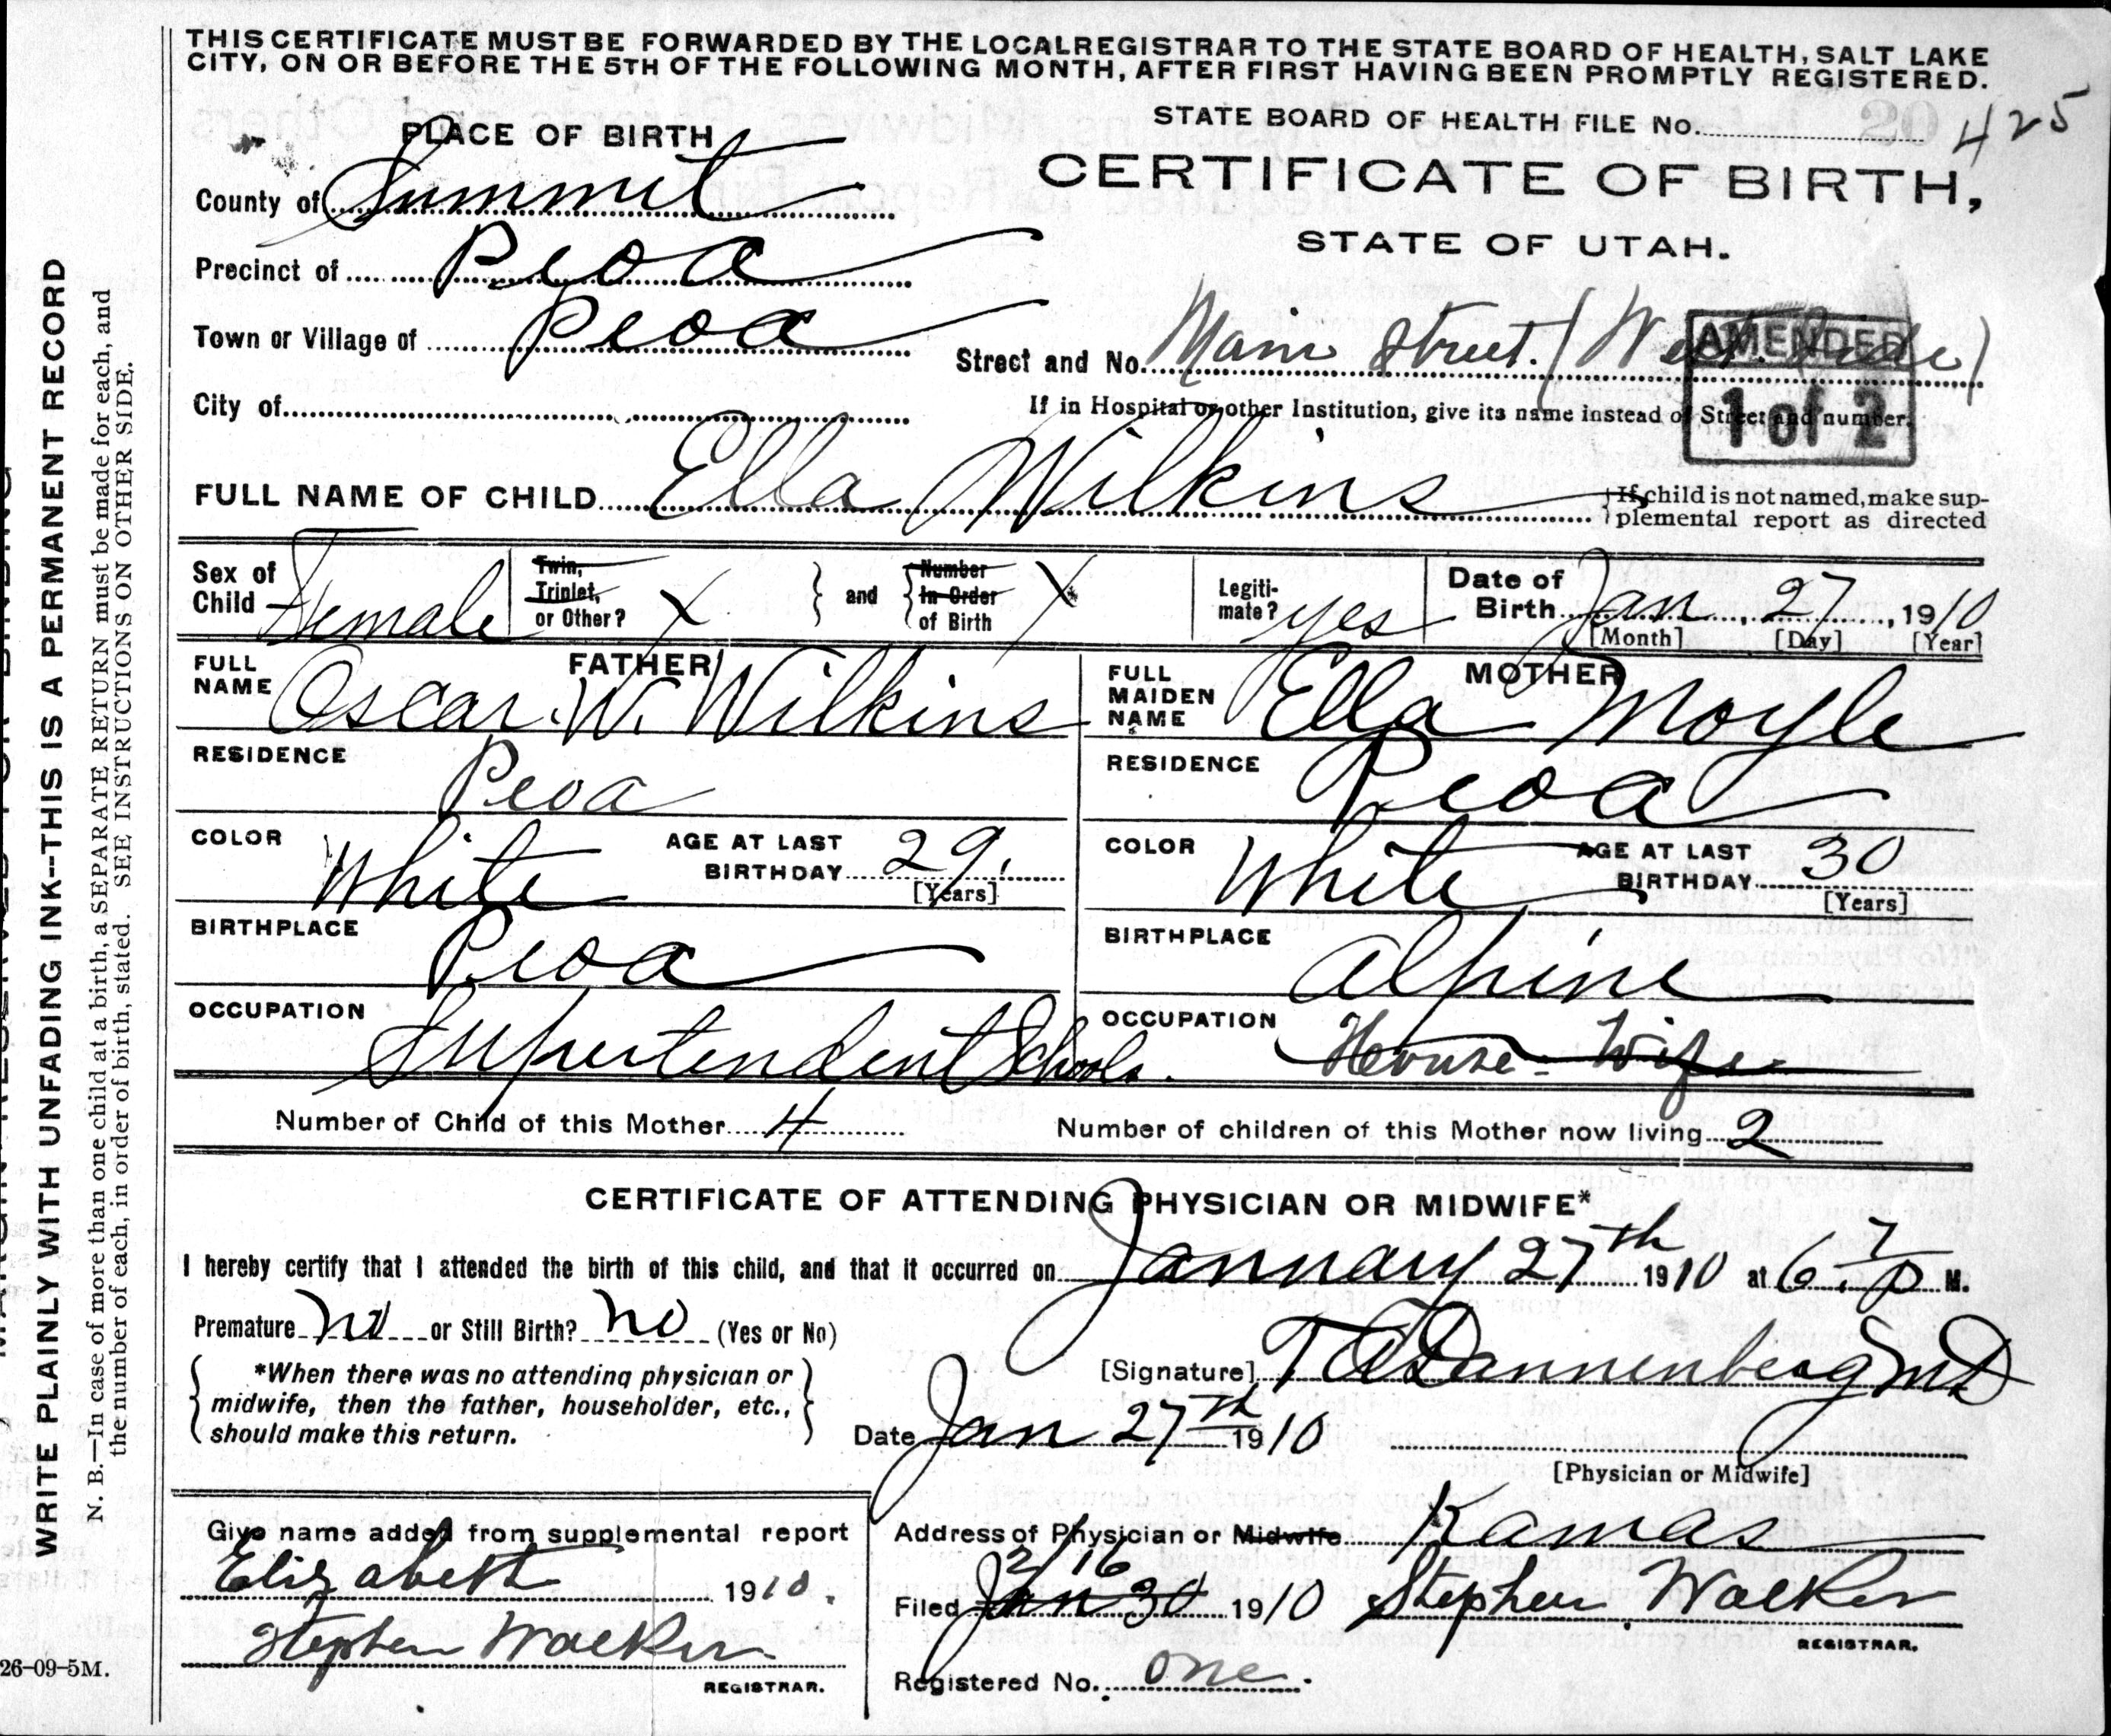 THIS CERTIFICATE MUST BE FORWARDED BY THE LOCAL REGISTRAR TO THE STATE BOARD OF HEALTH, SALT LAKE
CITY, ON OR BEFORE THE 5TH OF THE FOLLOWING MONTH, AFTER FIRST HAVING BEEN PROMPTLY REGISTERED.
STATE BOARD OF HEALTH FILE No. 20 425
PLACE OF BIRTH
CERTIFICATE OF BIRTH,
STATE OF UTAH.
County of Summit
Precinct of Peoa
Town or Village of Peoa
Street and No. Main Street. (West Side)
AMENDED
1 of 2
City of
If in Hospital or other Institution, give its name instead of Street and number.
FULL NAME OF CHILD Ella Wilkins
If child is not named, make sup-
plemental report as directed
Sex of Child Female
Twin, Triplet, or Other? X
and Number In Order of Birth X
Legiti-mate? yes
Date of Birth Jan, 27, 1910
[Month] [Day] [Year]
FATHER
FULL NAME Oscar. W. Wilkins
MOTHER
FULL MAIDEN NAME Ella Moyle
RESIDENCE Peoa
RESIDENCE Peoa
COLOR White AGE AT LAST BIRTHDAY 29. [Years]
COLOR White AGE AT LAST BIRTHDAY 30 [Years]
BIRTHPLACE Peoa
BIRTHPLACE Alpine
OCCUPATION Supertendent Schools.
OCCUPATION House-Wife
Number of Child of this Mother 4
Number of children of this Mother now living 2
CERTIFICATE OF ATTENDING PHYSICIAN OR MIDWIFE*
I hereby certify that I attended the birth of this child, and that it occurred on January 27th 1910 at 6:7 P M.
Premature no or Still Birth? no (Yes or No)
*When there was no attending physician or
midwife, then the father, householder, etc.,
should make this return.
[Signature] T A Dannenberg MD
Date Jan 27th 1910
[Physician or Midwife]
Give name added from supplemental report
Elizabeth 1910.
Stephen Walker
REGISTRAR.
Address of Physician or Midwife Kamas
2/16
Filed Jan 30 1910 Stephen Walker
REGISTRAR.
Registered No. one.
WRITE PLAINLY WITH UNFADING INK--THIS IS A PERMANENT RECORD
N. B.—In case of more than one child at a birth, a SEPARATE RETURN must be made for each, and
the number of each, in order of birth, stated. SEE INSTRUCTIONS ON OTHER SIDE.
26-09-5M.